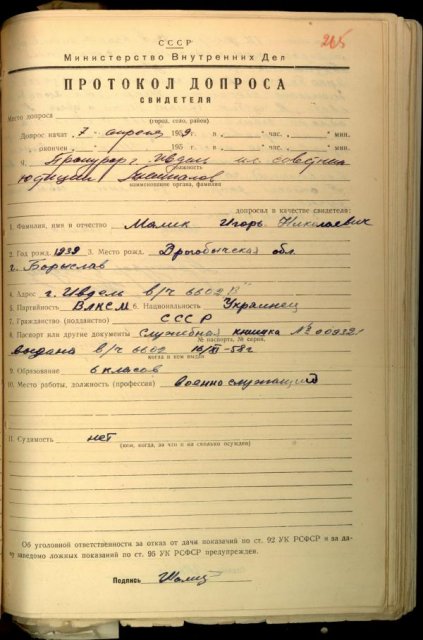 СССР
265
Министерство Внутренних Дел
ПРОТОКОЛ ДОПРОСА
СВИДЕТЕЛЯ
Место допроса
(город, село, район)
Допрос начат „7“ апреля 1959г. в „ “ час. „ “ мин.
„ окончен „ “ 195 г. в „ “ час. „ “ мин.
Я, Прокурор г. Ивдель мл. советник
должность
юстиции
наименование органа, фамилия
допросил в качестве свидетеля:
1. Фамилия, имя и отчество Малик Игорь Николаевич
2. Год рожд. 1939 3. Место рожд. Дрогобычская обл.
г. Борыслав
4. Адрес г. Ивдель в/ч 6602 "В"
5. Партийность ВЛКСМ 6. Национальность Украинец
7. Гражданство (подданство) СССР
8. Паспорт или другие документы Служебная книжка №
№ паспорта, № серия,
выдана в/ч 6602 16/XI-58г.
когда и кем выдан
9. Образование 6 класов
10. Место работы, должность (профессия) военнослужащий
11. Судимость нет
(кем, когда, за что и на сколько осужден)
Об уголовной ответственности за отказ от дачи показаний по ст. 92 УК РСФСР и за да-
чу заведомо ложных показаний по ст. 95 УК РСФСР предупрежден.
Подпись